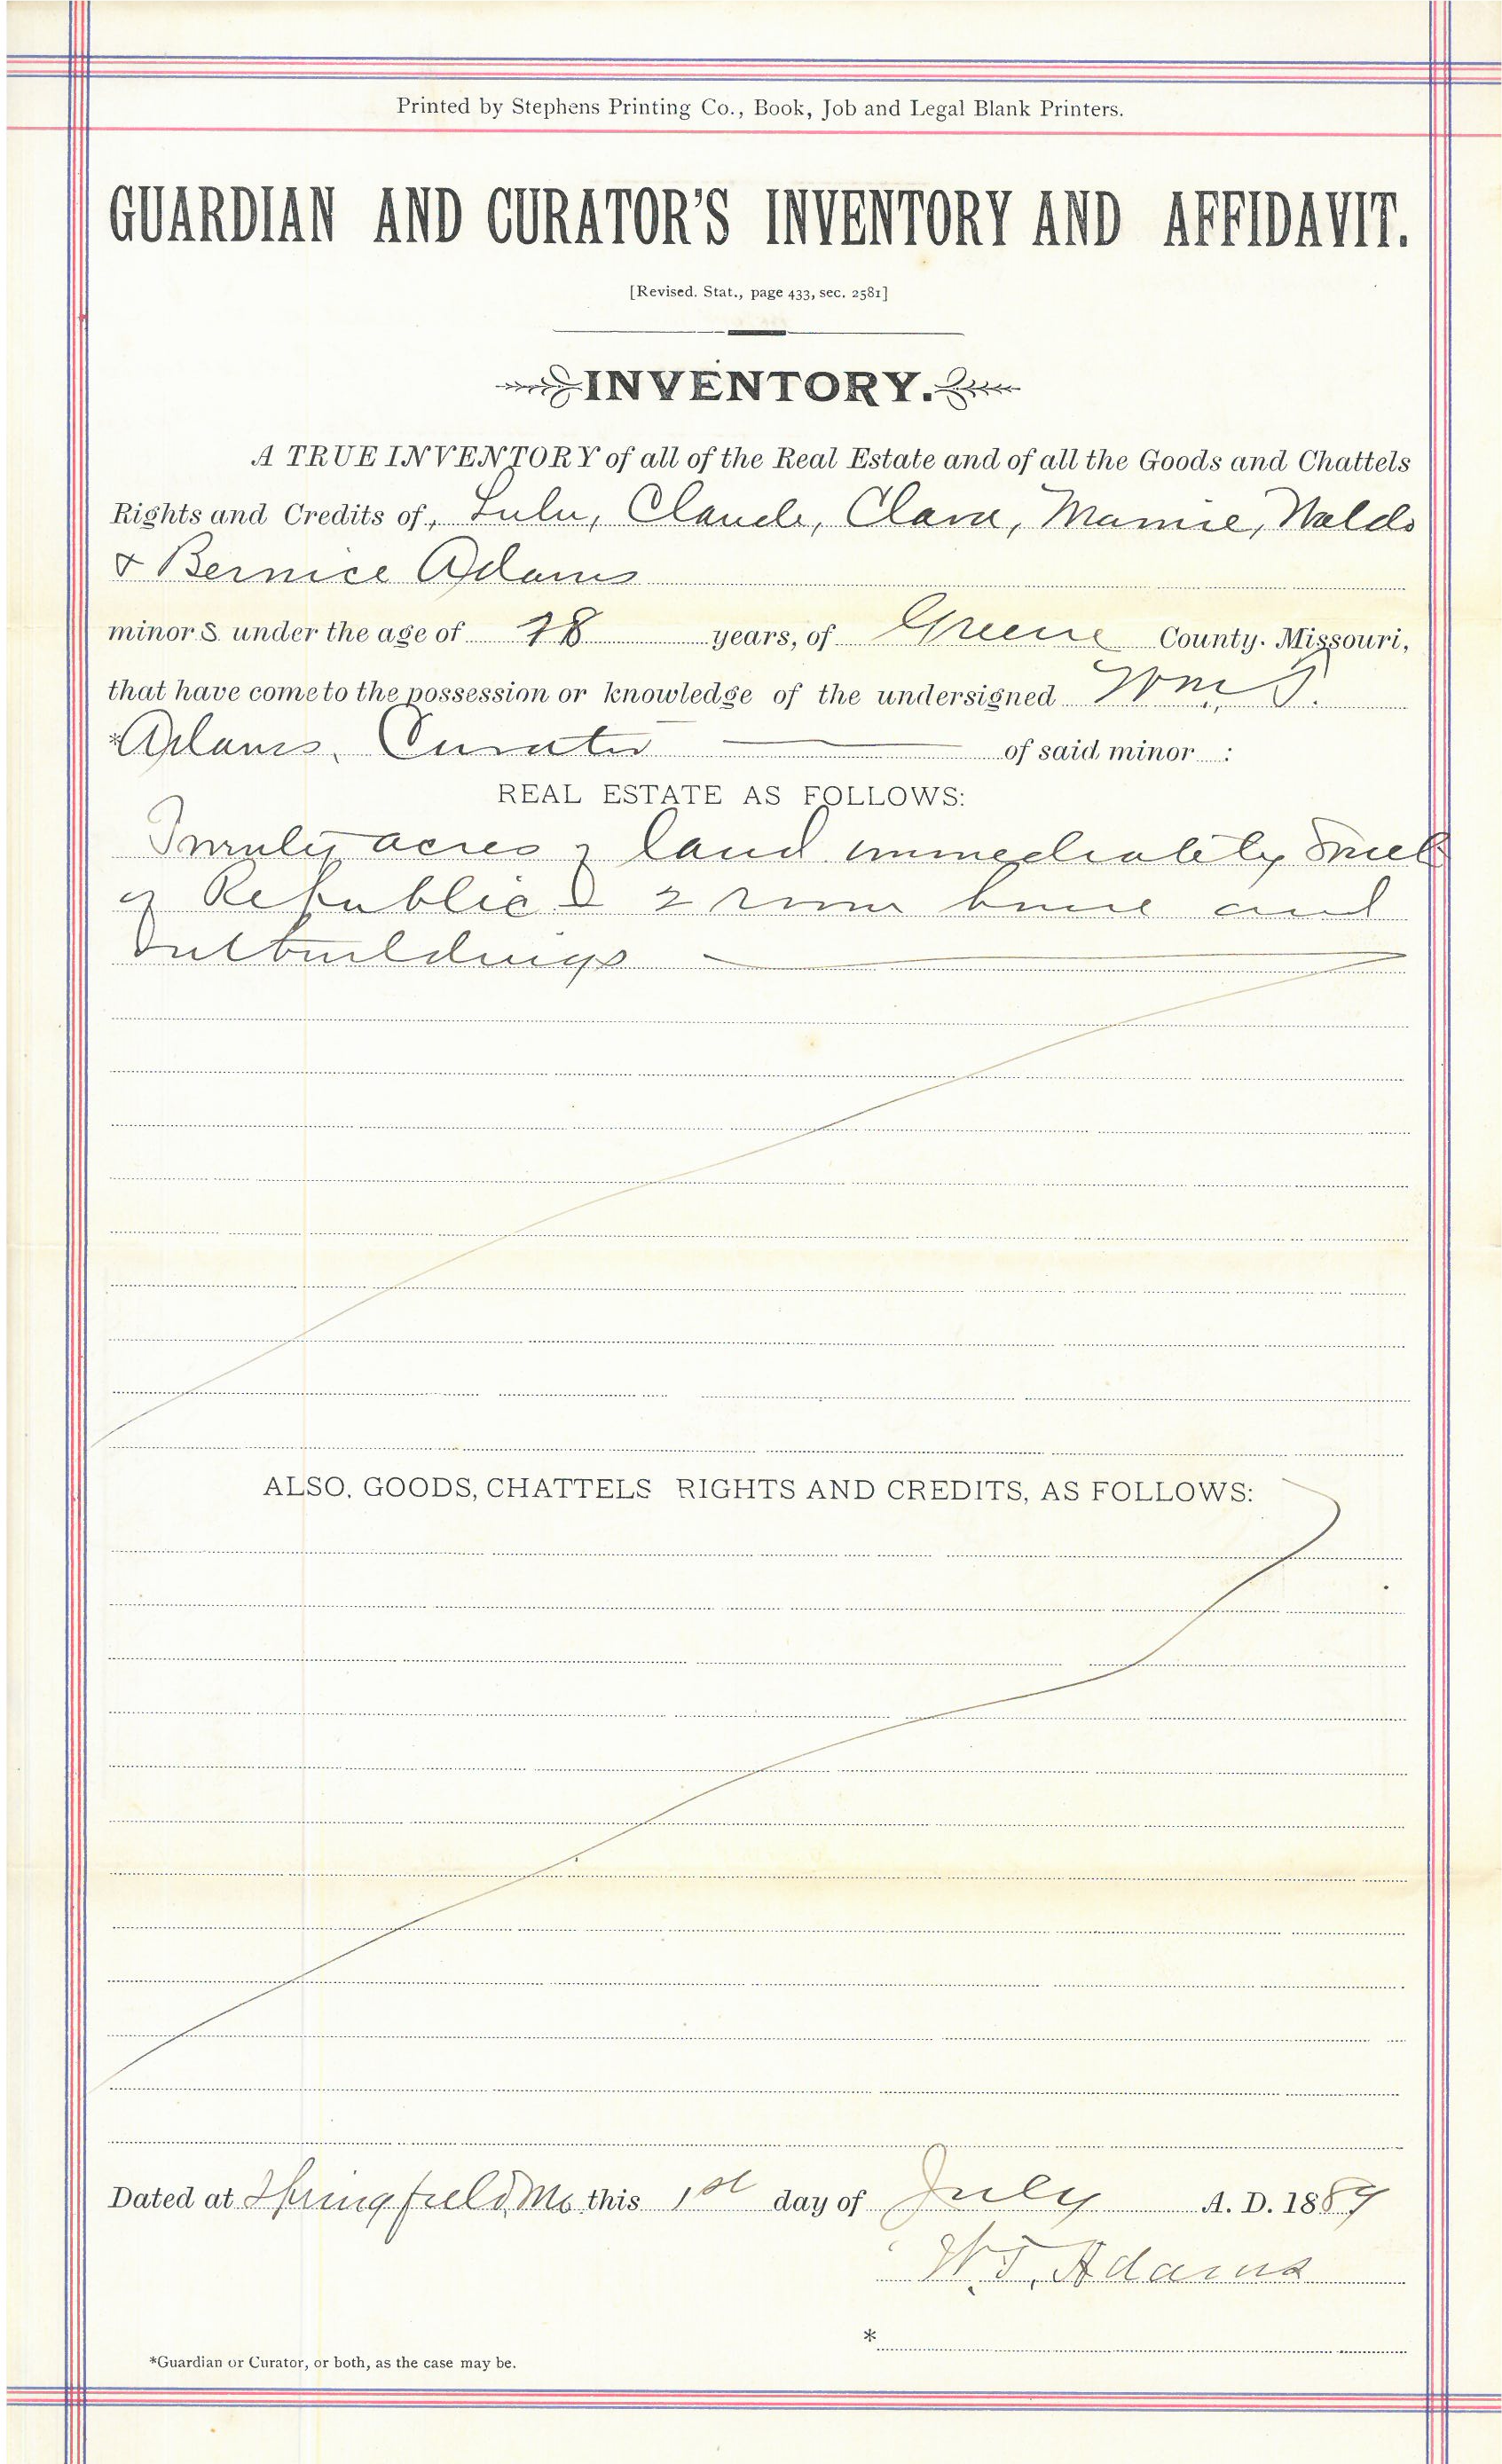 Printed by Stephens Printing Co., Book, Job and Legal Blank Printers.
GUARDIAN AND CURATOR'S INVENTORY AND AFFIDAVIT.
[Revised. Stat., page 433, sec. 2581]
INVENTORY.
A TRUE INVENTORY of all of the Real Estate and of all the Goods and Chattels
Rights and Credits of, Lulu, Claude, Clara, Mamie, Waldo
& Bernice Adams
minors under the age of 18 years, of Greene County. Missouri,
that have come to the possession or knowledge of the undersigned Wm T.
*Adams, Curator of said minor :
REAL ESTATE AS FOLLOWS:
Twenty acres of land immediately
of Republic & 2 room house and
Outbuildings
ALSO, GOODS, CHATTELS RIGHTS AND CREDITS, AS FOLLOWS:
Dated at Springfield, Mo this 1st day of July A. D. 1889
W. T. Adams
*
*Guardian or Curator, or both, as the case may be.